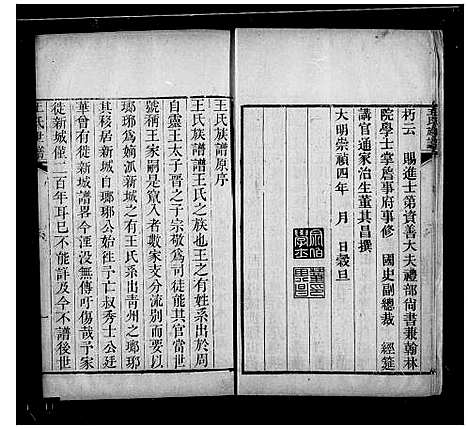 朽云 賜進士第資善大夫禮部尙書兼翰林
院學士掌詹事府事修 國史副總裁 經筵
講官通家治生董其昌撰
大明崇禎四年 月 日穀旦
王氏族譜原序
王氏族譜譜王氏之族也王之有姓系出於周
自靈王太子晉之子宗敬爲司徒能其官當世
號稱王家嗣是竄入者數家支分流別而要以
瑯琊爲嫡派新城之有王氏系出青州之瑯琊
其移居新城自瑯琊公始往予亡叔秀士公廷
華曾有從新城譜畧今湮没勿傳傷哉予家
徙新城僅二百年耳已不能詳及今不譜後世
王氏世譜